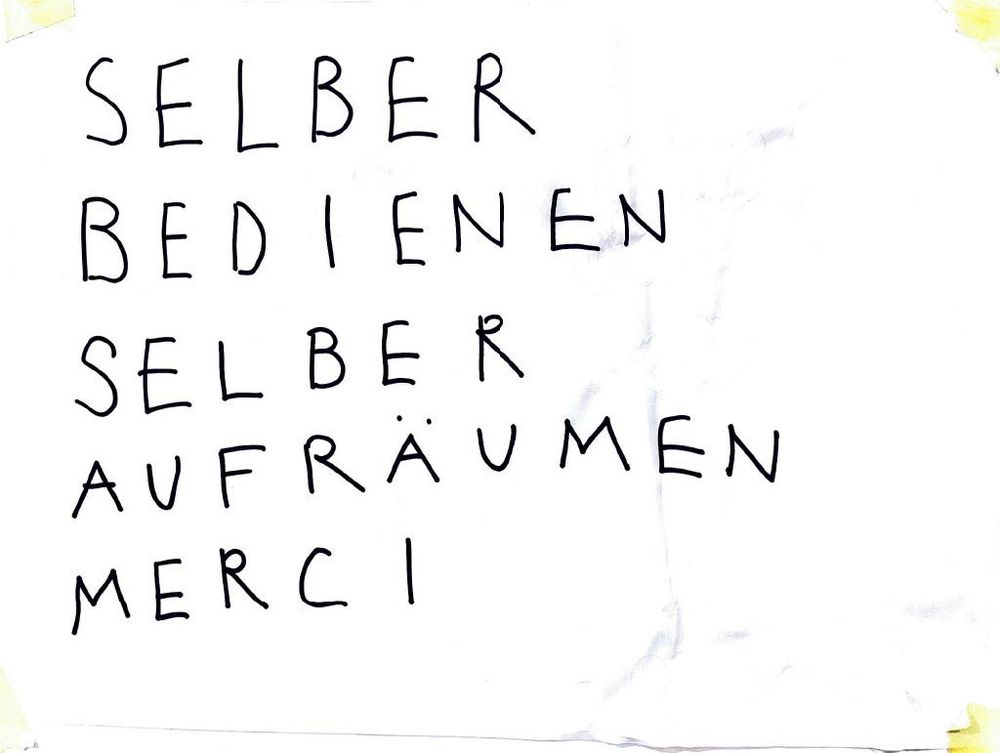 SELBER
BEDIENEN
SELBER
AUFRÄUMEN
MERCI